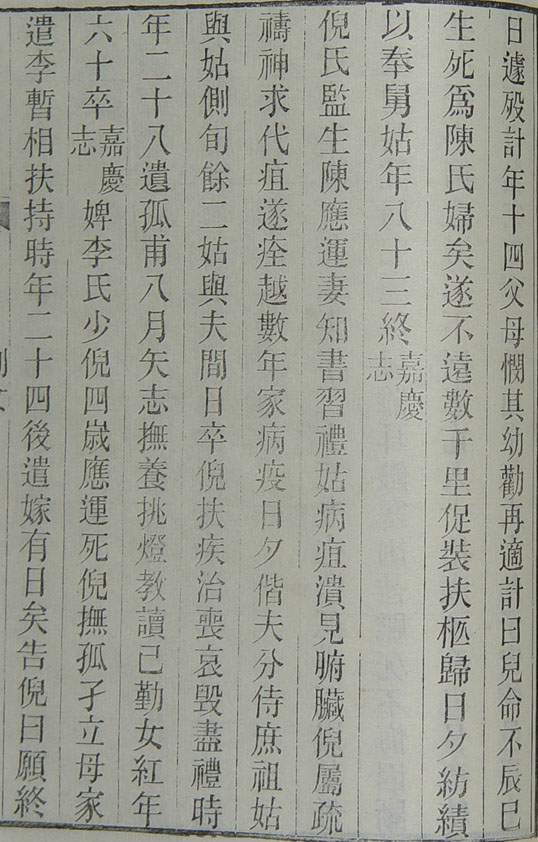 日遽歿計年十四父母憫其幼勸再適計曰兒命不辰已
生死爲陳氏婦矣遂不遠數千里促裝扶柩歸日夕紡績
以奉舅姑年八十三終嘉慶志
倪氏監生陳應運妻知書習禮姑病疽潰見腑臟倪屬疏
禱神求代疽遂痊越數年家病疫日夕偕夫分侍庶祖姑
與姑側旬餘二姑與夫間日卒倪扶疾治喪哀毀盡禮時
年二十八遺孤甫八月矢志撫養挑燈教讀己勤女紅年
六十卒嘉慶志婢李氏少倪四歲應運死倪撫孤孑立母家
遣李暫相扶持時年二十四後遣嫁有日矣告倪曰願終